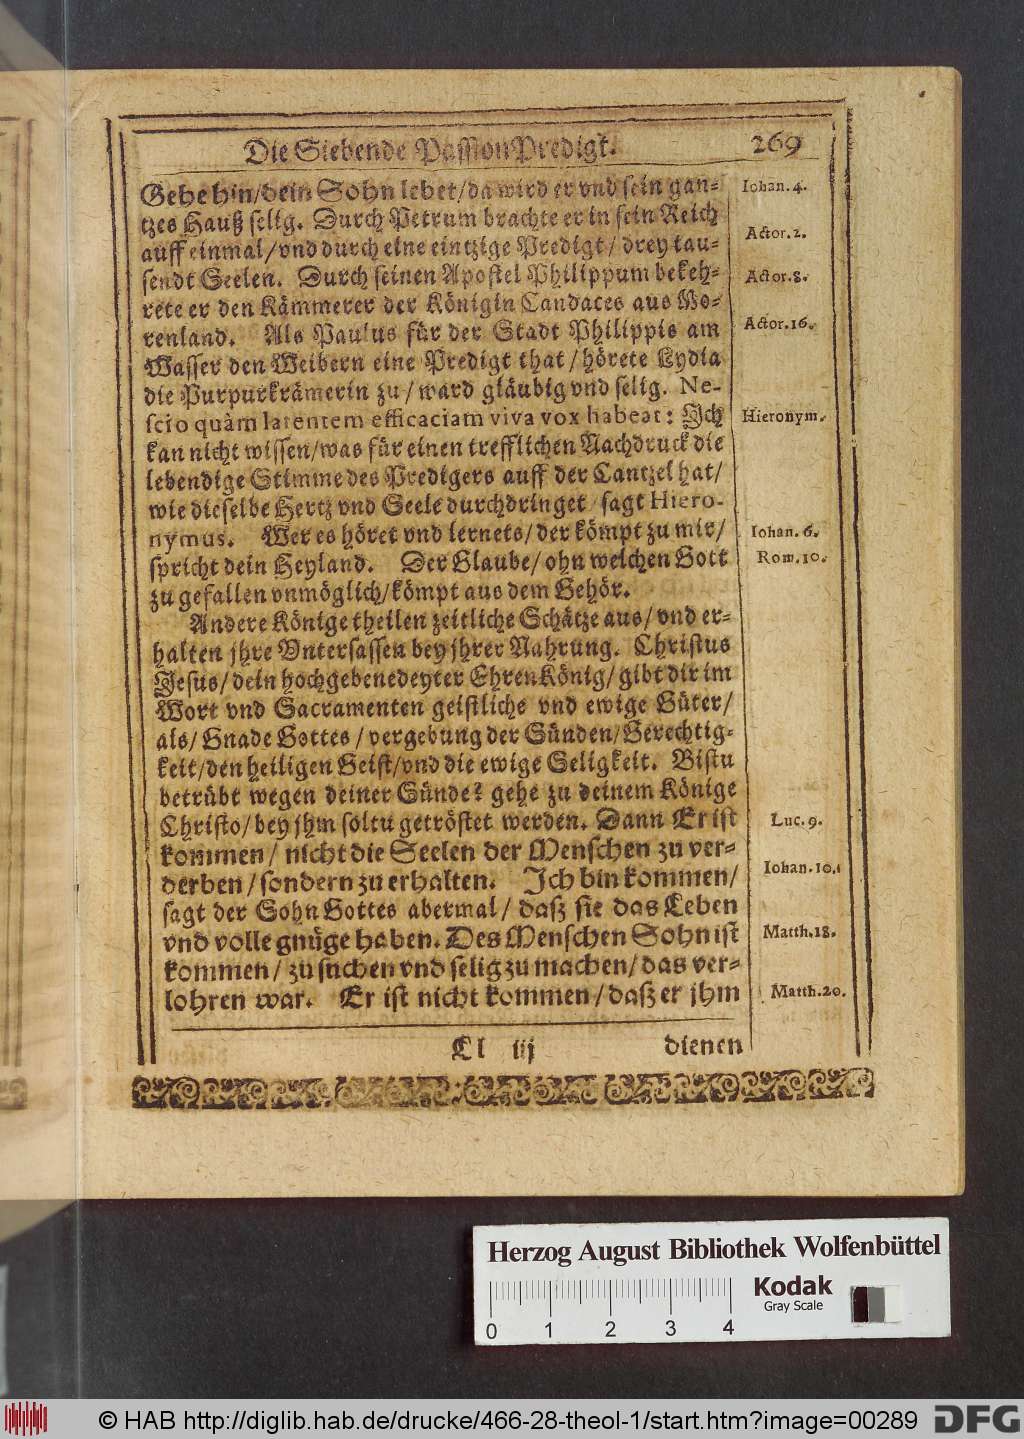 Die Siebende PassionPredigt. 269
Gehe hin/dein Sohn lebet/da wird er vnd sein gan-
tzes Hauß selig. Durch Petrum brachte er in sein Reich
auff einmal/vnd durch eine eintzige Predigt/drey tau-
sendt Seelen. Durch seinen Apostel Philippum bekeh-
rete er den Kämmerer der Königin Candaces aus Mo-
renland. Als Paulus für der Stadt Philippis am
Wasser den Weibern eine Predigt that/hörete Lydia
die Purpurkrämerin zu/ward gläubig vnd selig. Ne-
scio quàm latentem efficaciam viva vox habeat: Ich
kan nicht wissen/was für einen trefflichen Nachdruck die
lebendige Stimme des Predigers auff der Cantzel hat/
wie dieselbe Hertz vnd Seele durchdringet/sagt Hiero-
nymus. Wer es höret vnd lernets/der kömpt zu mir/
spricht dein Heyland. Der Glaube/ohn welchen Gott
zu gefallen vnmöglich/kömpt aus dem Gehör.
Andere Könige theilen zeitliche Schätze aus/vnd er-
halten jhre Vntersassen bey jhrer Nahrung. Christus
Jesus/dein hochgebenedeyter EhrenKönig/gibt dir im
Wort vnd Sacramenten geistliche vnd ewige Güter/
als/Gnade Gottes/vergebung der Sünden/Gerechtig-
keit/den heiligen Geist/vnd die ewige Seligkeit. Bistu
betrübt wegen deiner Sünde? gehe zu deinem Könige
Christo/bey jhm soltu getröstet werden. Dann Er ist
kommen/nicht die Seelen der Menschen zu ver-
derben/sondern zu erhalten. Ich bin kommen/
sagt der Sohn Gottes abermal/daß sie das Leben
vnd volle gnüge haben. Des Menschen Sohn ist
kommen/zu suchen vnd selig zu machen/das ver-
lohren war. Er ist nicht kommen/daß er jhm
Ll iij dienen
Iohan. 4.
Actor. 2.
Actor. 8.
Actor. 16.
Hieronym.
Iohan. 6.
Rom. 10.
Luc. 9.
Iohan. 10.
Matth. 18.
Matth. 20.
Herzog August Bibliothek Wolfenbüttel
Kodak
Gray Scale
0 1 2 3 4
© HAB http://diglib.hab.de/drucke/466-28-theol-1/start.htm?image=00289
DFG